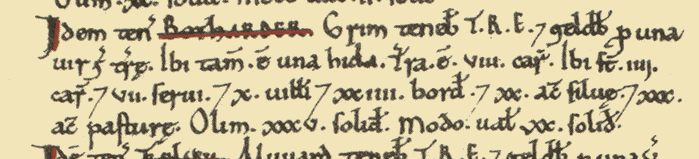 Idem teñ BOTHARDER. Grim teneƀ T.R.E. ⁊ geldƀ ꝑ una
uirg̃ tr̃e. Ibi tam̃. ẽ una hida. Tr̃a. ẽ. viii. car̃. Ibi st̃. iiii.
car̃. ⁊ vii. serui. ⁊ x. uilli ⁊ xxiiii. borđ. ⁊ xx. ac̃ siluę. ⁊ xxx.
ac̃ pasturę. Olim. xxxv. soliđ. Modo. ual̃ xx. soliđ.
Aluuard teneƀ T.R.E. ⁊ geldƀ ꝑ